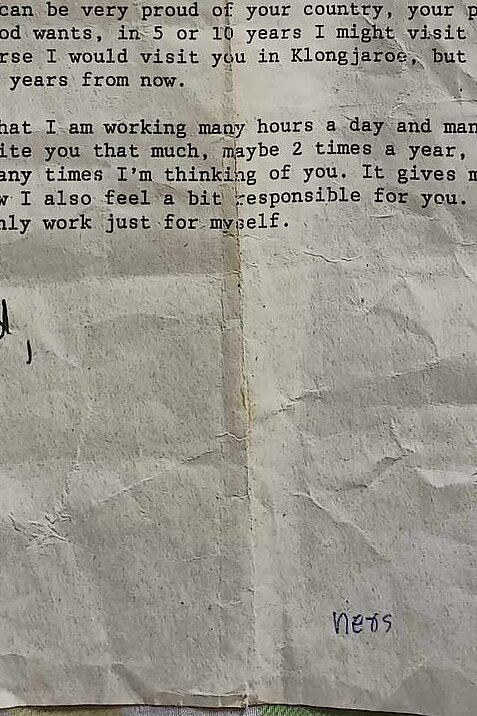 can be very proud of your country, your p
od wants, in 5 or 10 years I might visit
rse I would visit you in Klongjaroe, but
years from now.
hat I am working many hours a day and man
ite you that much, maybe 2 times a year,
any times I'm thinking of you. It gives m
w I also feel a bit responsible for you.
nly work just for myself.
d,